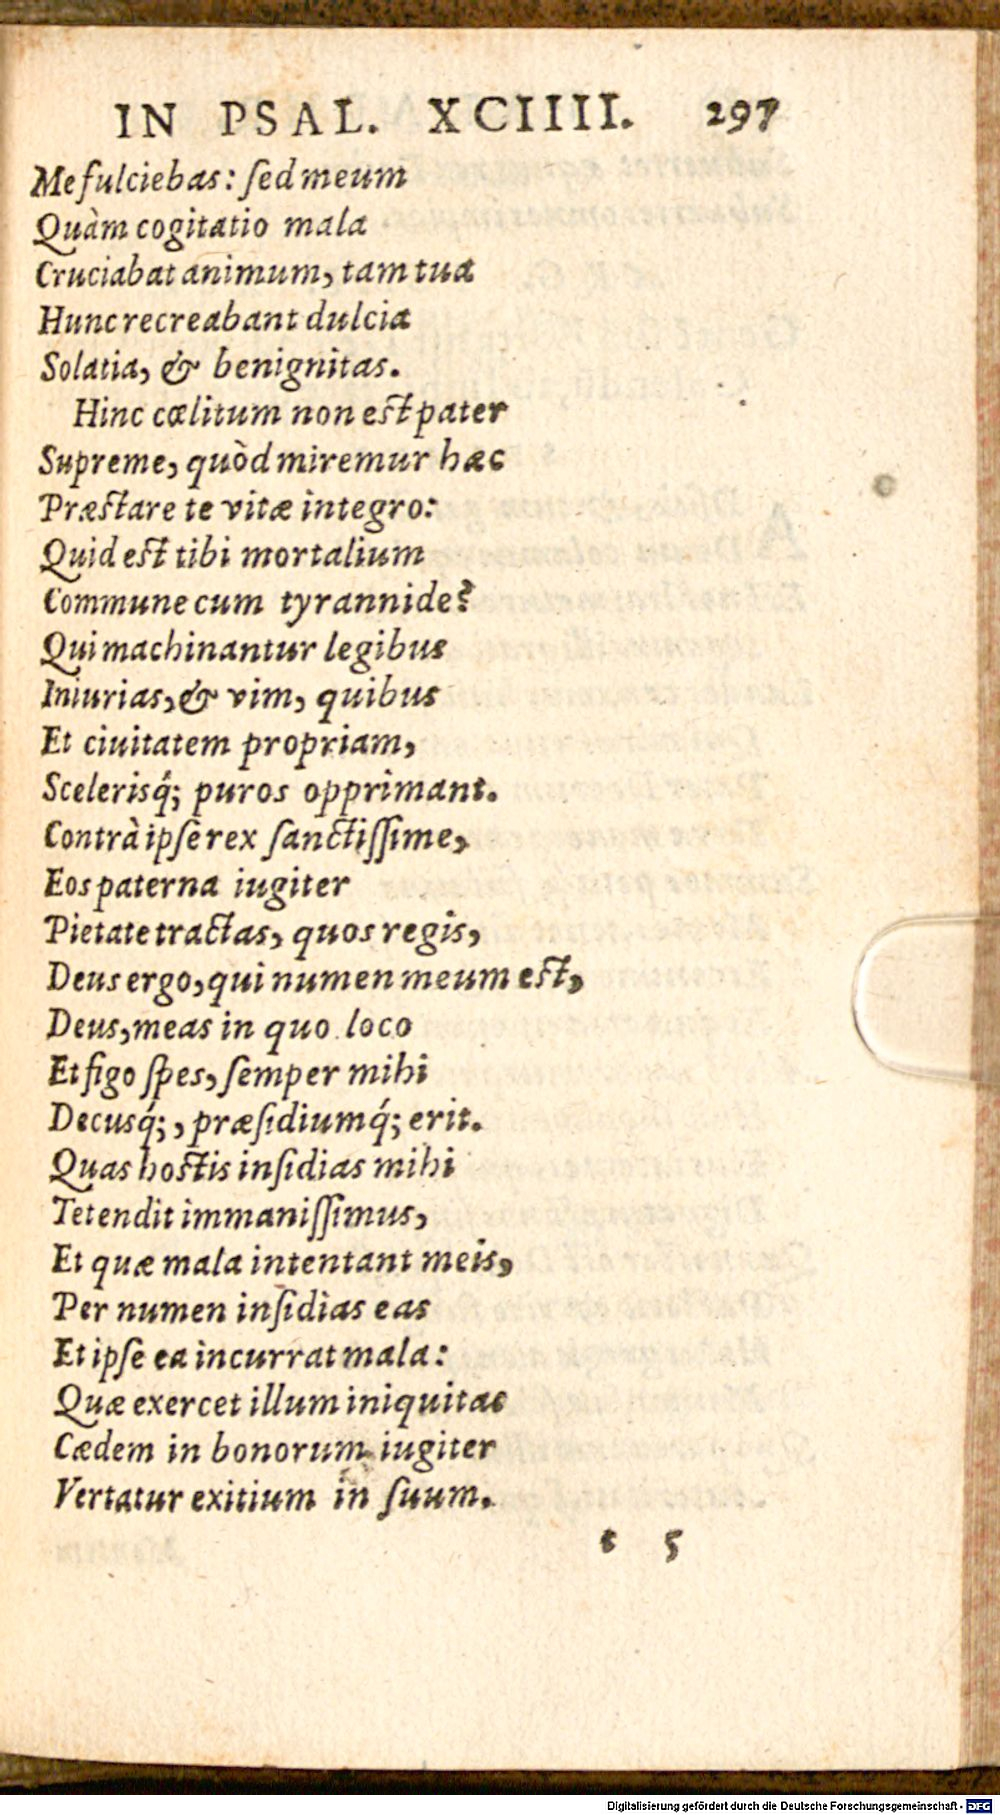 IN PSAL. XCIIII. 297
Me fulciebas: ſed meum
Quàm cogitatio mala
Cruciabat animum, tam tua
Hunc recreabant dulcia
Solatia, & benignitas.
Hinc cælitum non eſt pater
Supreme, quòd miremur hæc
Præſtare te vitæ integro:
Quid eſt tibi mortalium
Commune cum tyrannide?
Qui machinantur legibus
Iniurias, & vim, quibus
Et ciuitatem propriam,
Sceleriſq́; puros opprimant.
Contrà ipſe rex ſanctiſſime,
Eos paterna iugiter
Pietate tractas, quos regis,
Deus ergo, qui numen meum eſt,
Deus, meas in quo loco
Et figo ſpes, ſemper mihi
Decusq́;, præſidiumq́; erit.
Quas hoſtis inſidias mihi
Tetendit immaniſſimus,
Et quæ mala intentant meis,
Per numen inſidias eas
Et ipſe ea incurrat mala:
Quæ exercet illum iniquitas
Cædem in bonorum iugiter
Vertatur exitium in ſuum.
t 5
Digitalisierung gefördert durch die Deutsche Forschungsgemeinschaft - DFG